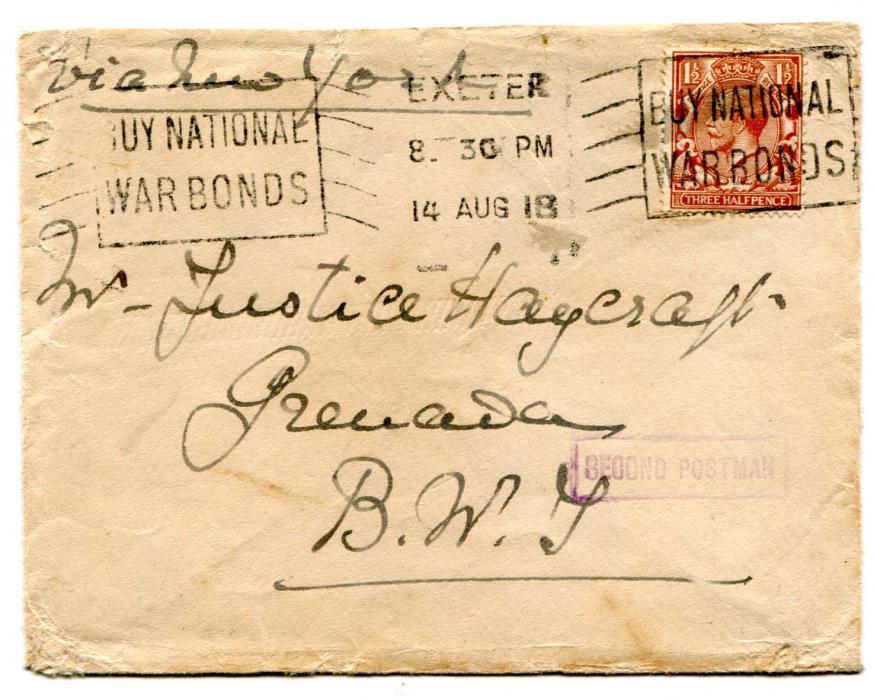 Via New York
EXETER
8- 30 PM
14 AUG 18
BUY NATIONAL
WAR BONDS
1½ 1½
BUY NATIONAL
WAR BONDS
THREE HALFPENCE
Mr Justice Haycraft
Grenada
B.W.I
SECOND POSTMAN